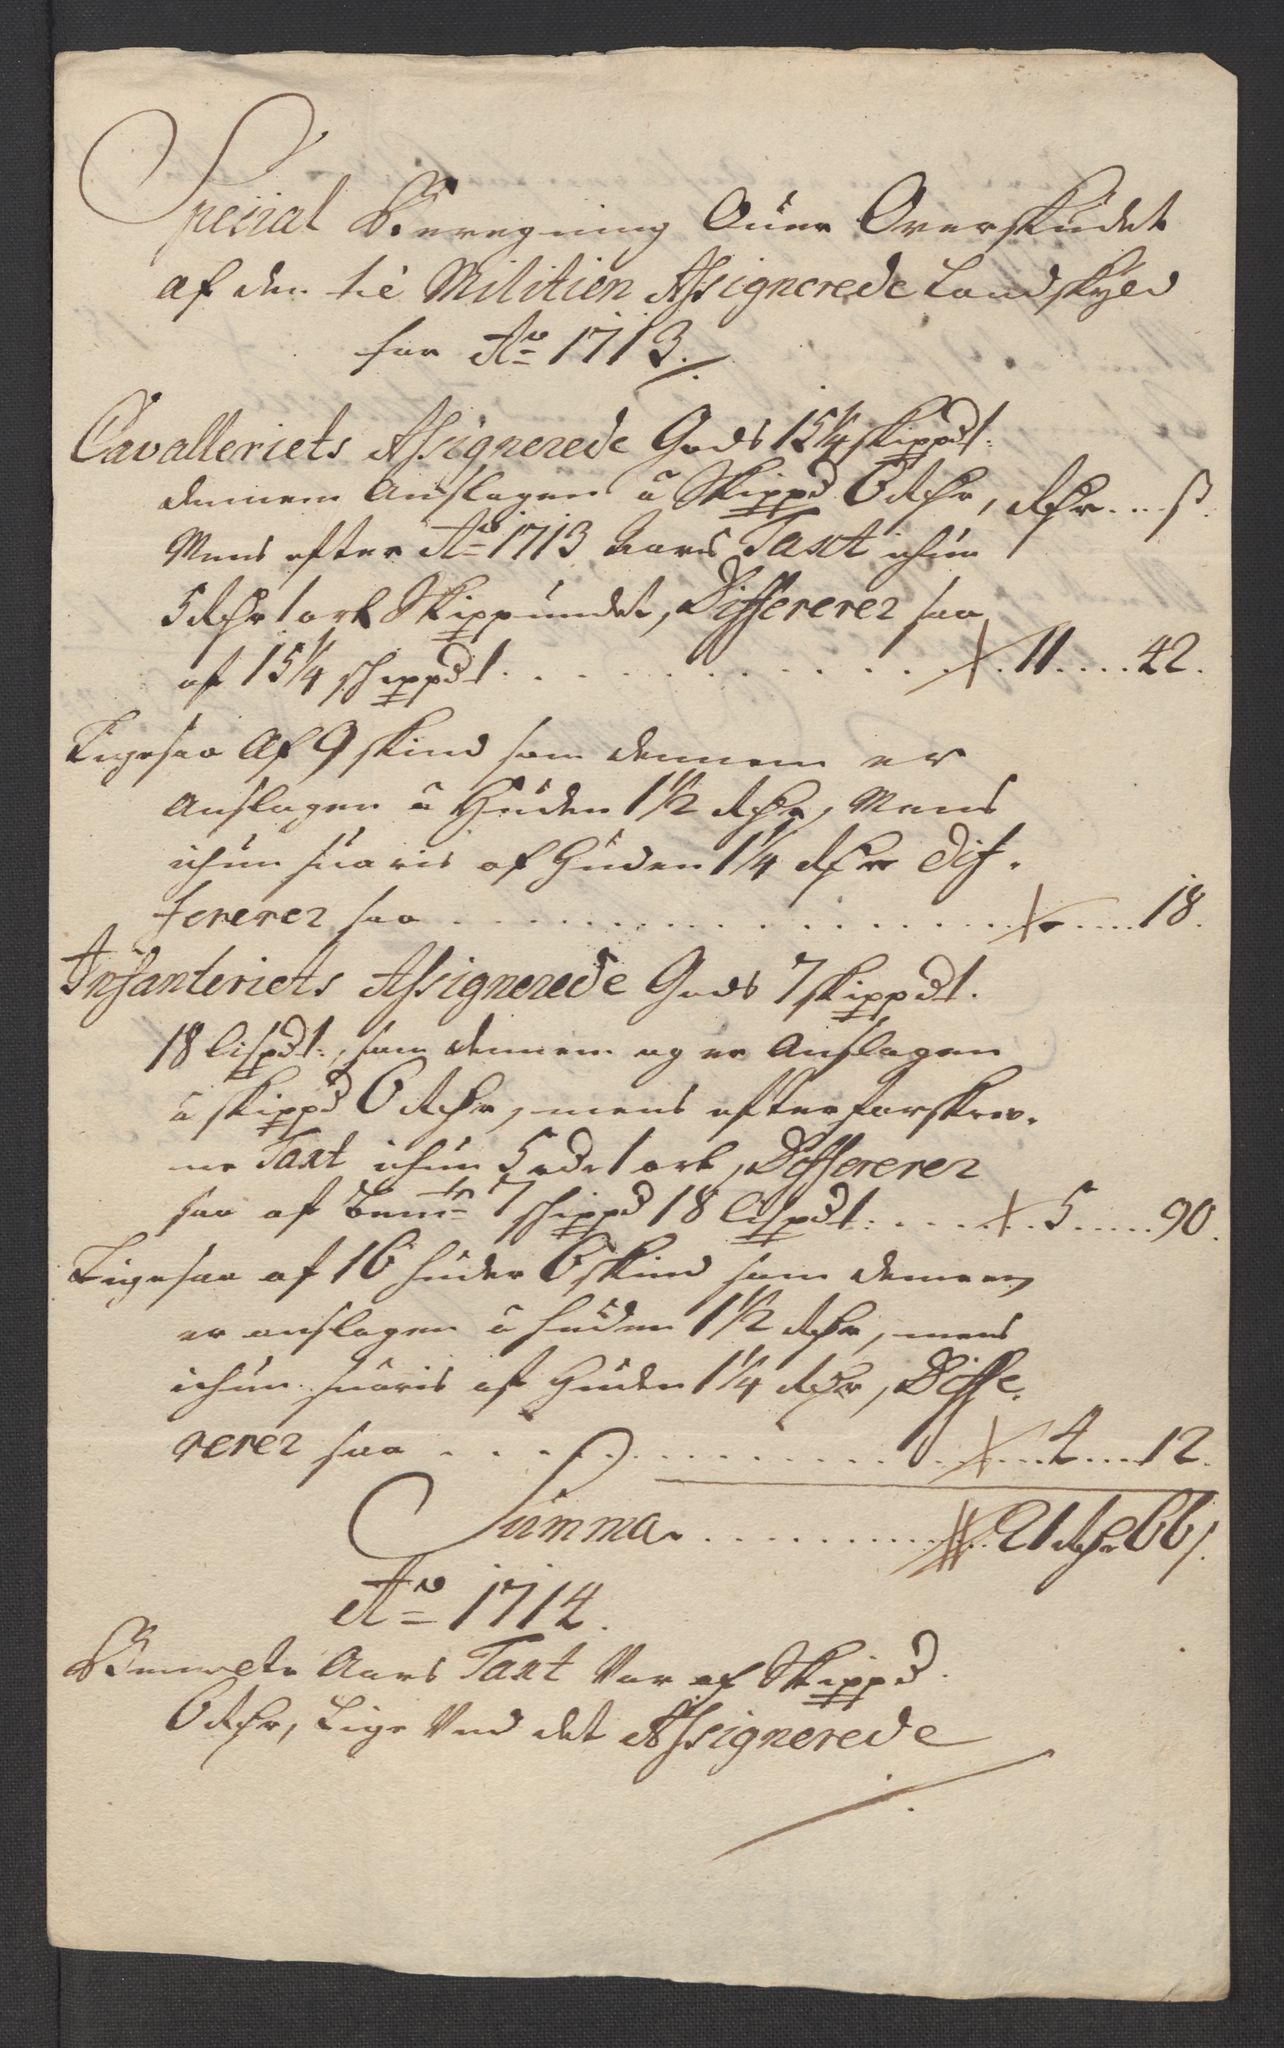 Special Beregning Over Overskudet
af den til Militien Assignerede Landskyld
for Ao 1713.
Cavalleriets Assignerede Gods 15¼ skippdt:
dennem Anslagen â Skippd 6 Rdr, Rdr....ß.
Mens efter Ao 1713 Aars Taxt ichun
5 Rdr 1 ort Skippundet, Differerer saa
af 15¼ schippdt. . . . . . . . . . . 11 .... 42.
Ligesaa Af 9 skind som dennem er
Anslagen â Huden 1½ Rdr, Mens
ichun suaris af Huden 1¼ Rdr Dif-
fererer saa . . . . . . . . . . . . . . - .... 18.
Infanteriets Assignerede Gods 7 skippdt.
18 lispdt:, som dennem og er Anslagen
â skippd 6 Rdr, mens efter forskrev-
ne Taxt ichun 5 rdr 1 ort, Differerer
saa af bemte 7 schippd 18 lispdt: . . . . . 5 ..... 90.
Ligesaa af 16 huder 6 skind som dennem
er anslagen â huden 1½ Rdr, mens
ichun suaris af Huden 1¼ Rdr, Diffe-
rerer saa . . . . . . . . . . . . . . 4 .... 12.
Summa . . . . . . . . . . 21 Rdr 66 ß.
Ao 1714.
Bemelte Aars Taxt Var af Skippd.
6 Rdr, Lige Ved det Assignerede